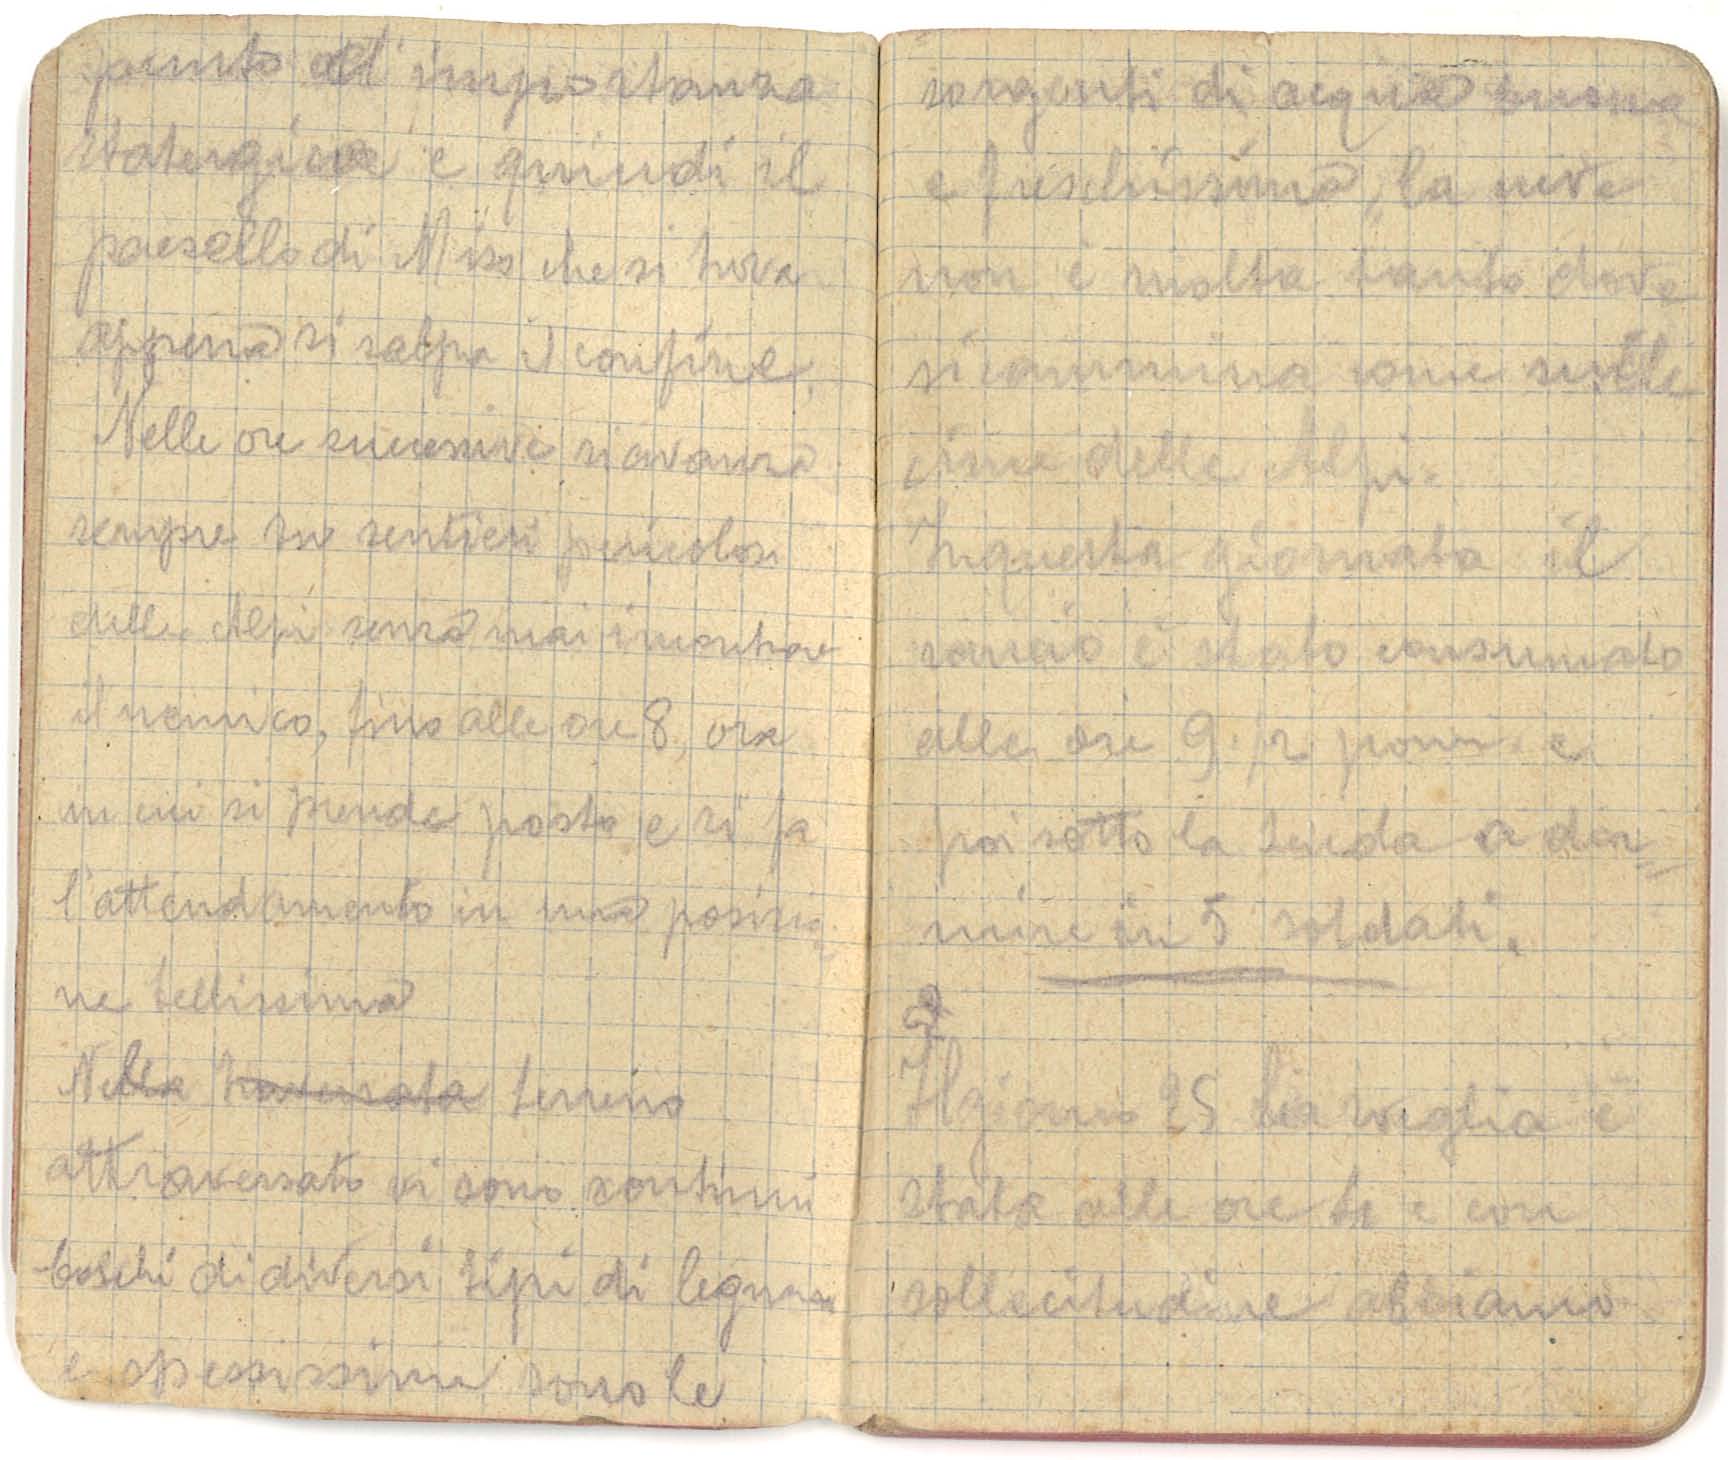 punto d'importanza
stategica e quindi il
paesello di Miso che si trova
appena si salpa il confine.
Nelle ore successive si avanza
sempre su sentieri pericolosi
delle Alpi senza mai incontrare
il nemico, fino alle ore 8, ora
in cui si prende posto e si fa
l'attendamento in una posizio=
ne bellissima
Nella traversata terreno
attraversato vi sono continui
boschi di diversi tipi di legname
e spessissime sono le
sorgenti di acqua buona
e freschissima, la neve
non è molta tanto dove
si cammina come sulle
cime delle Alpi.
In questa giornata il
rancio è stato consumato
alle ore 9 1/2 pom. e
poi sotto la tenda a dor=
mire in 5 soldati.
Il giorno 25 la sveglia è
stata alle ore 4 e con
sollecitudine abbiamo